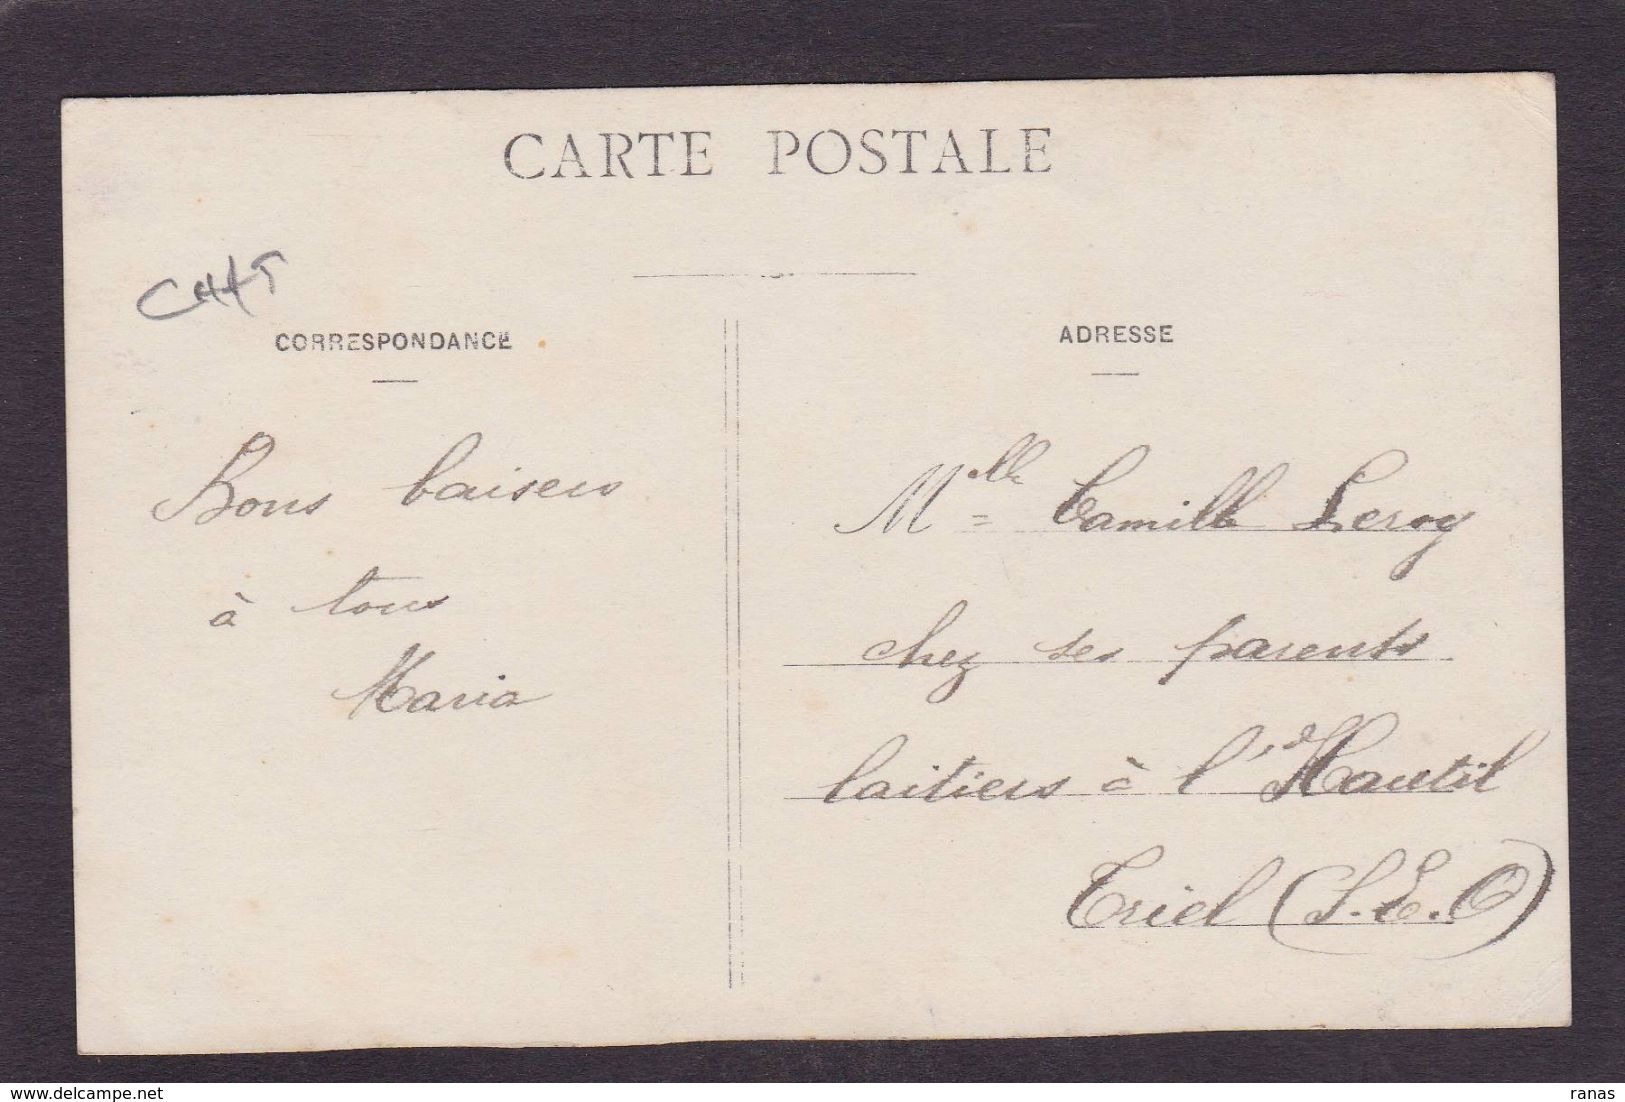 CARTE POSTALE
CHAT
CORRESPONDANCE
Bons baisers
à tous
Maria
ADRESSE
Melle Camille Leroy
chez ses parents
laitiers à l'Hautil
Triel (S.E.O)
delcampe.net
ranas